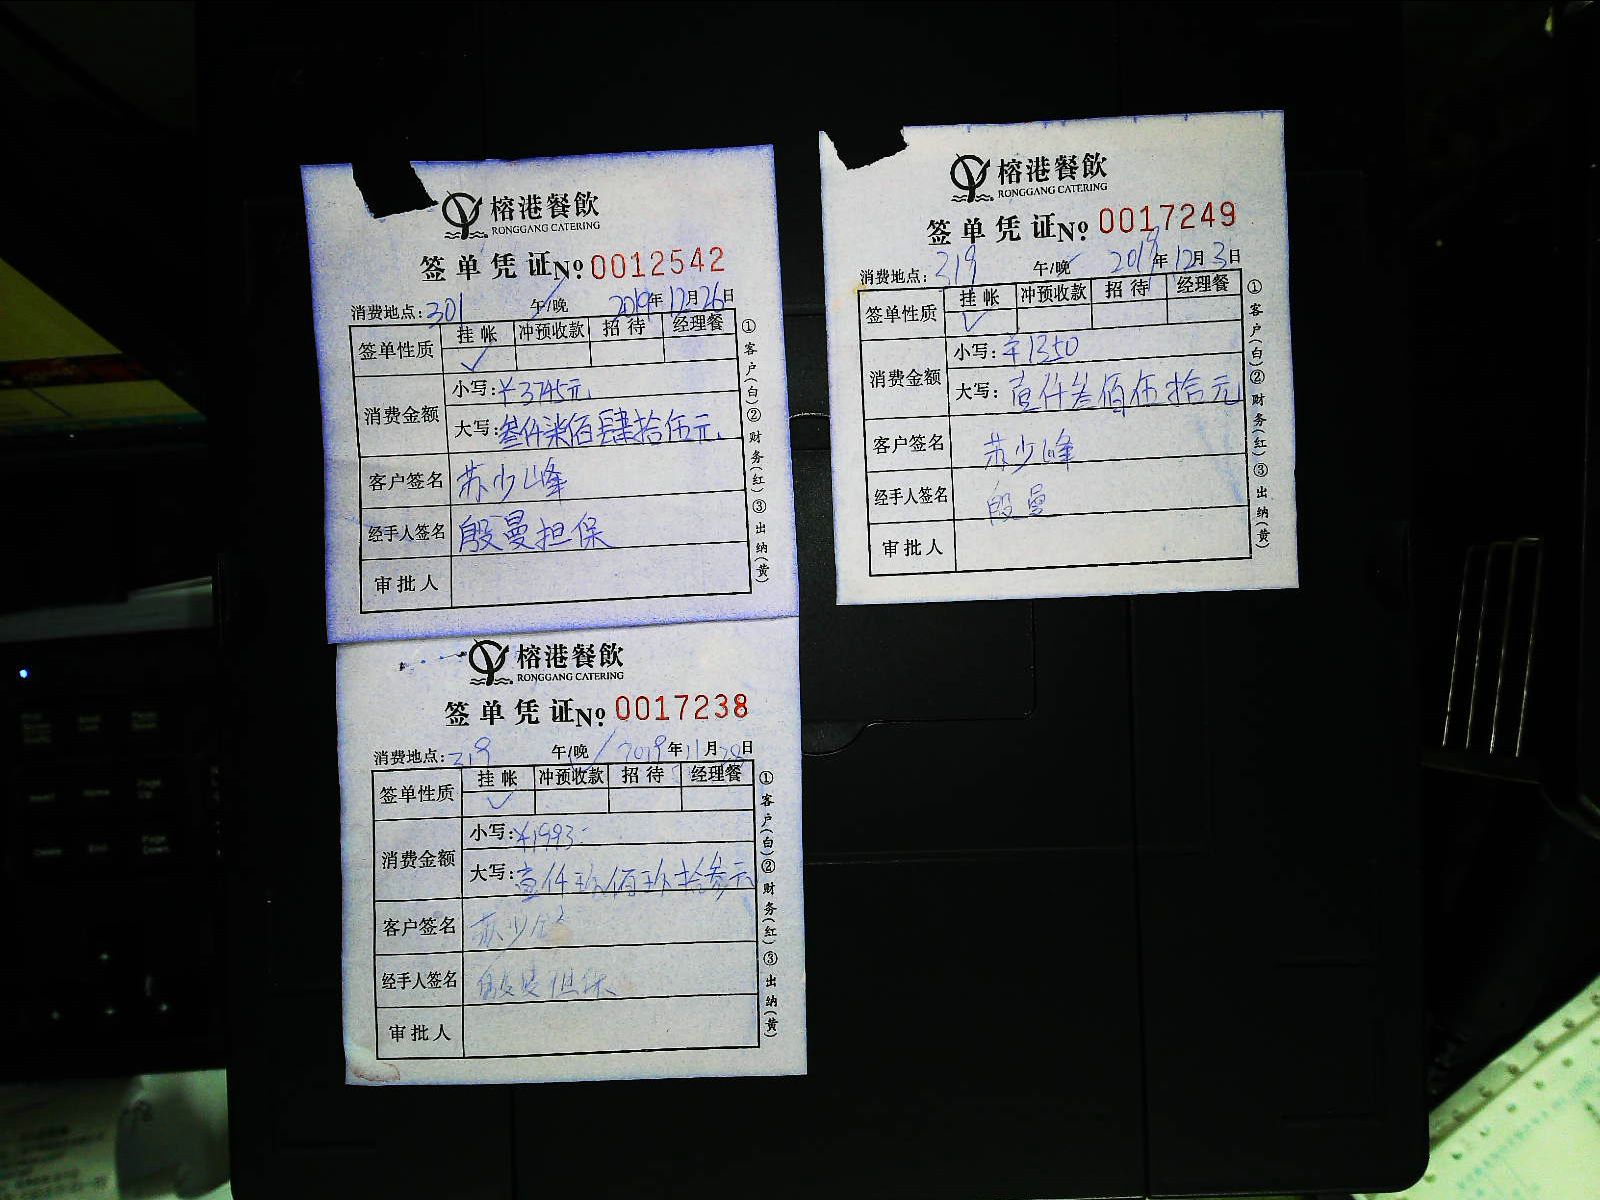 榕港餐飲
RONGGANG CATERING
签单凭证№ 0012542
消费地点:301 午/晚 2019年12月26日
签单性质 挂帐 冲预收款 招待 经理餐
✓
消费金额 小写:¥3745元
大写:叁仟柒佰肆拾伍元
客户签名 苏少峰
经手人签名 殷曼担保
审批人
①客户(白)②财务(红)③出纳(黄)
榕港餐飲
RONGGANG CATERING
签单凭证№ 0017249
消费地点:319 午/晚✓ 2019年12月3日
签单性质 挂帐 冲预收款 招待 经理餐
✓
消费金额 小写:¥1350
大写:壹仟叁佰伍拾元
客户签名 苏少峰
经手人签名 殷曼
审批人
①客户(白)②财务(红)③出纳(黄)
榕港餐飲
RONGGANG CATERING
签单凭证№ 0017238
消费地点:319 午/晚✓ 2019年11月28日
签单性质 挂帐 冲预收款 招待 经理餐
✓
消费金额 小写:¥1993-
大写:壹仟玖佰玖拾叁元
客户签名 苏少
经手人签名 殷曼担保
审批人
①客户(白)②财务(红)③出纳(黄)